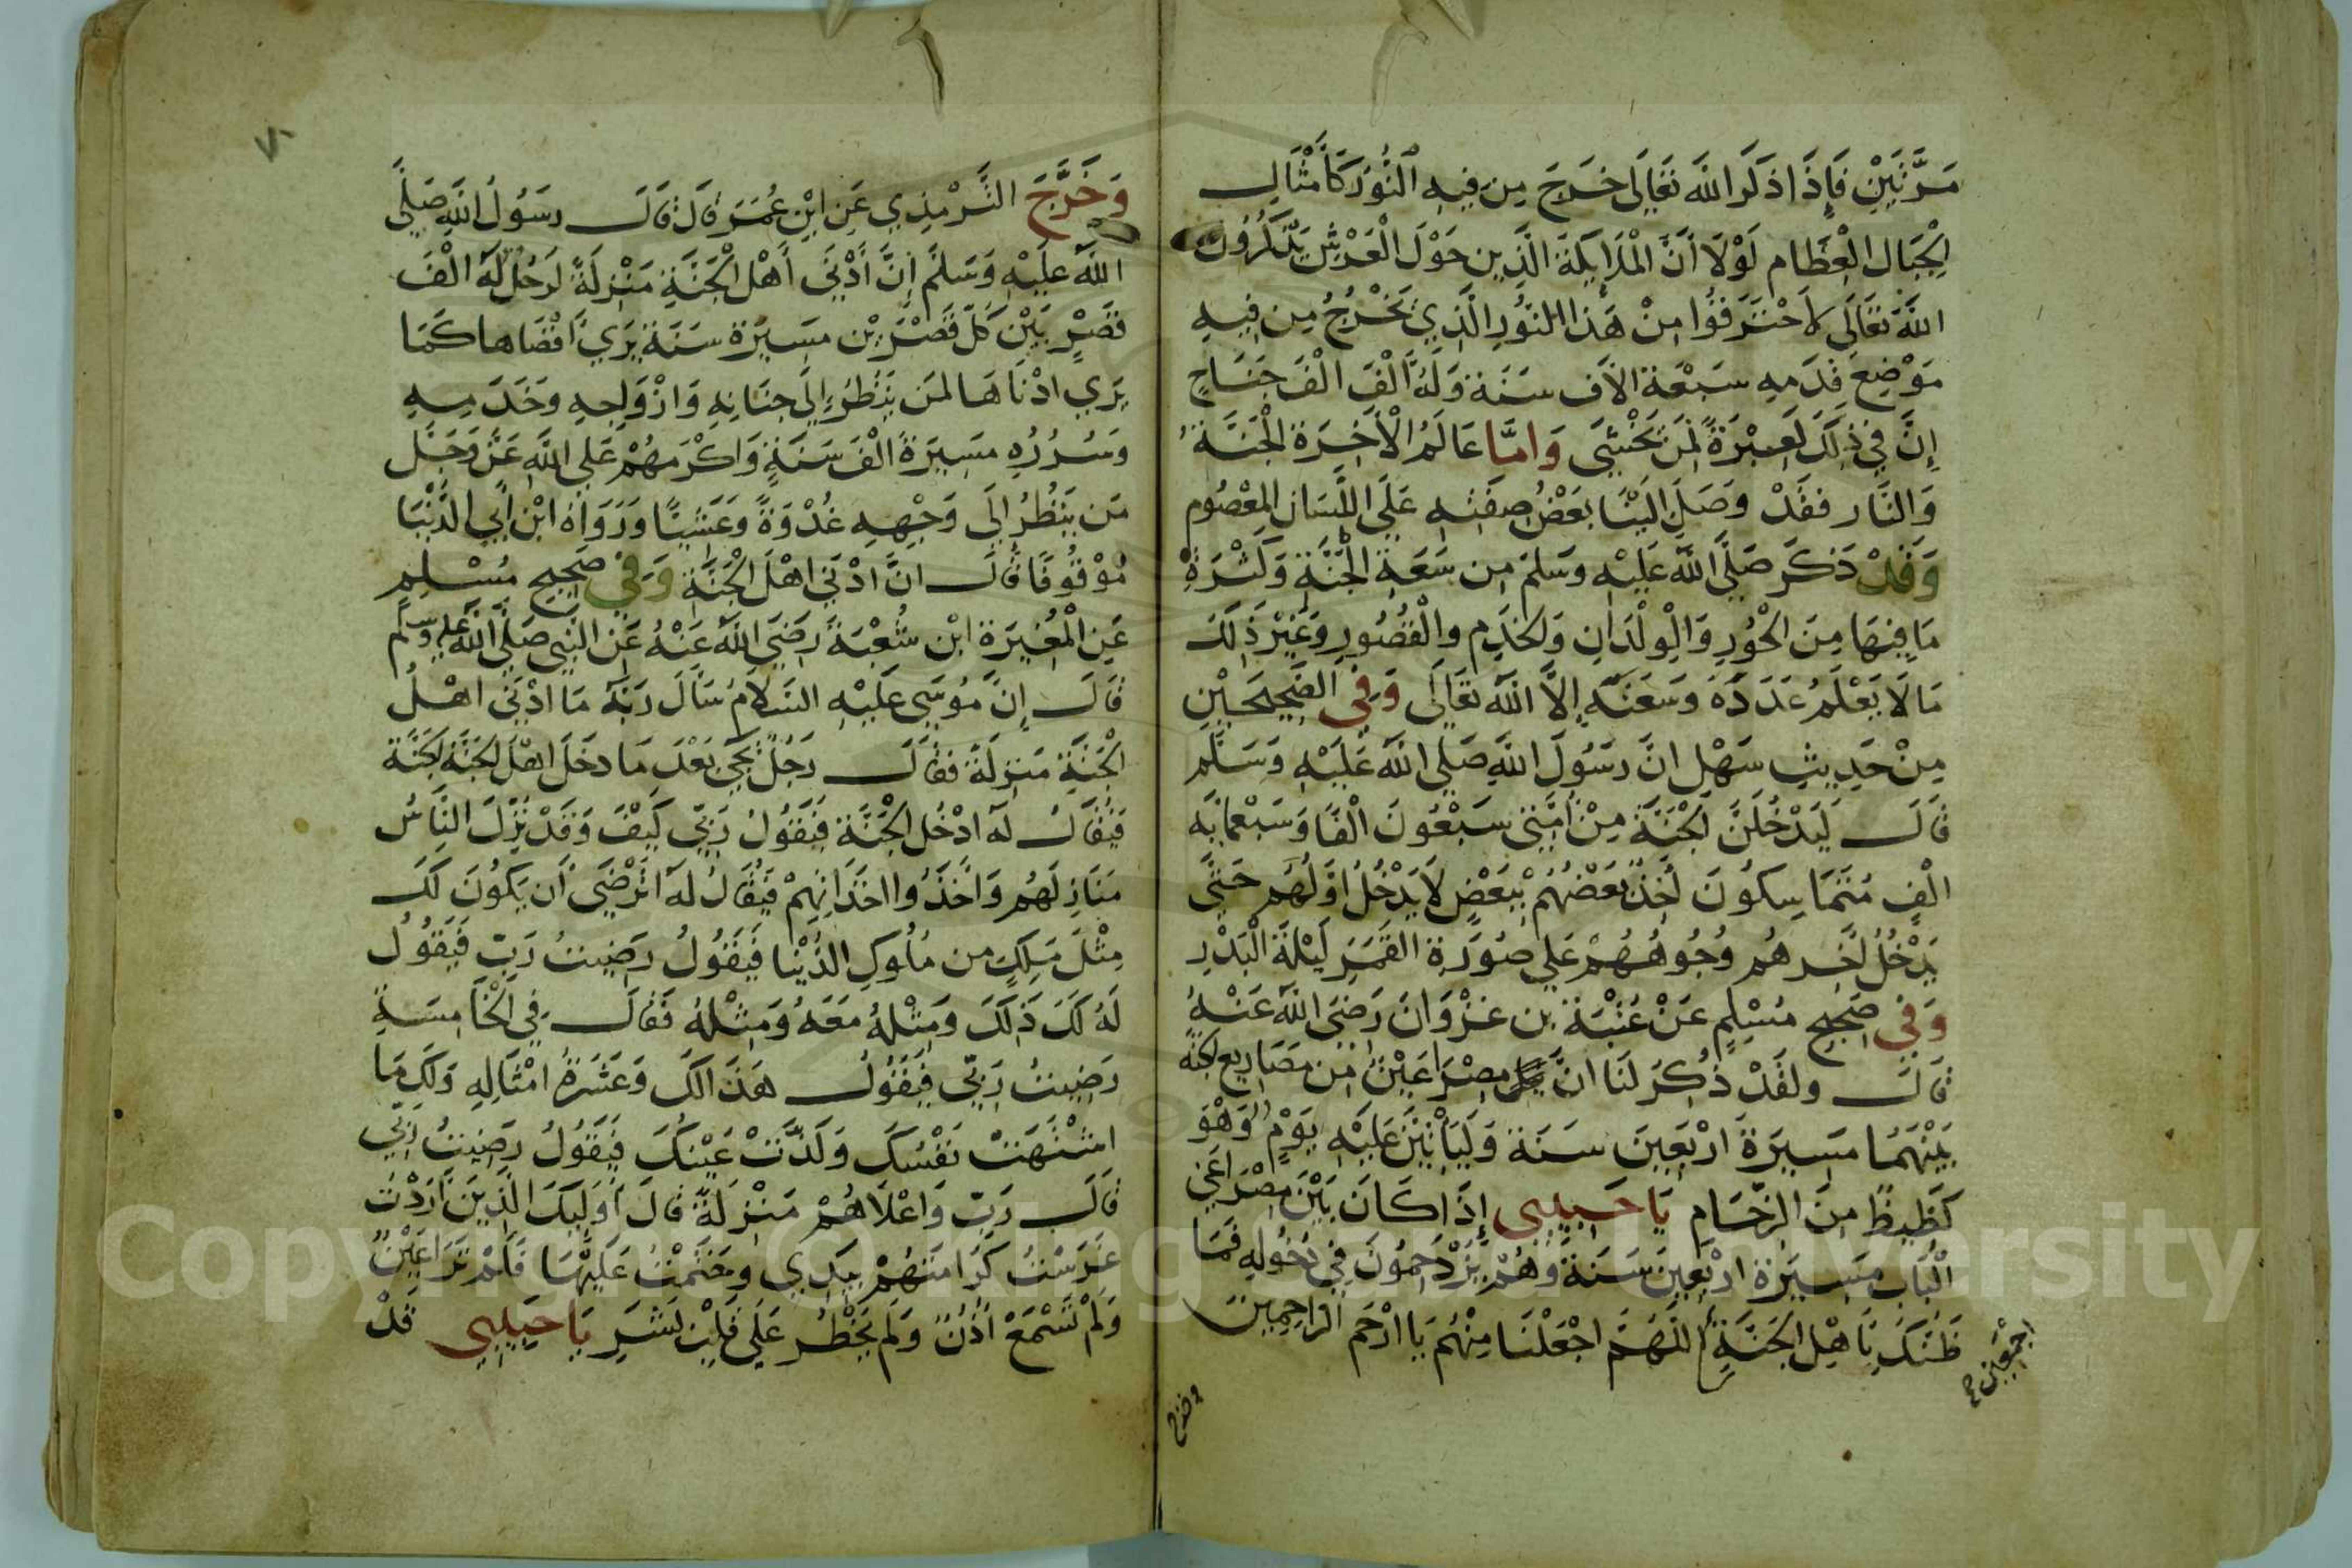 مَرَّتَيْنِ فَإِذَا ذَكَرَ اللَّهَ تَعَالَى خَرَجَ مِن فِيهِ النُّوُر كَأَمْثَالِ
الْجِبَالِ الْعِظَامِ لَوْلَا أَنَّ الْمَلَايِكَةَ الَّذِينَ حَوْلَ الْعَرْشِ يَذْكُرُونَ
اللَّهَ تَعَالَى لَاحْتَرَقُوا مِنْ هَذَا النُّورِ الَّذِي يَخْرُجُ مِن فِيهِ
مَوْضِعَ قَدَمِهِ سَبْعَةَ الَافِ سَنَةٍ وَلَهُ أَلْفَ الْفَ جَنَاحٍ
إِنَّ فِي ذَلِكَ لَعِبْرَةً لِمَن يَخْشَى وَامَّا عَالَمُ الْأَخِرَةِ الْجَنَّةُ
وَالنَّار فَقَدْ وَصَلَ الَيْنَا بَعْضُ صِفَتِهِ عَلَى اللِّسَانِ الْمَعْصُومِ
وَقَدْ ذَكَرَ صَلَّى اللَّهُ عَلَيْهِ وَسَلَّمَ مِن سَعَةِ الْجَنَّةِ وَكَثْرَةِ
مَا فِيهَا مِنَ الْحُوْرِ وَالْوِلْدَانِ وَالْخَدَمِ وَالْقُصُورِ وَغَيْرِ ذَلِكَ
مَا لَا يَعْلَمُ عَدَدَهُ وَسَعَتَهِ إِلَّا اللَّهُ تَعَالَى وَفِي الصَّحِيحَيْنِ
مِنْ حَدِيثِ سَهْلٍ انَّ رَسُولَ اللَّهِ صَلَّى اللَّهُ عَلَيْهِ وَسَلَّم
قَالَ لَيَدْخُلَنَّ الْجَنَّةَ مِنْ أُمَّتِي سَبْعُونَ الْفًا وَسَبْعُمِايَه
الْفٍ مُتَمَاسِكُونَ آخِذٌ بَعْضُهُمْ بِبَعْضٍ لَا يَدْخُلُ اوَّلُهُم حَتَّى
يَدْخُلَ آخِرهُم وُجُوهُهُمْ عَلَى صُورَةِ القَمَرِ لَيْلَةَ الْبَدْرِ
وَفِي صَحِيحِ مُسْلِمٍ عَنْ عُتْبَةَ بن غزْوَانَ رَضِيَ اللَّهُ عَنْهُ
قَالَ ولَقَدْ ذُكِرَ لَنَا انَّ مِصْرَاعَيْنِ مِن مَصَارِيعِ الجنَّه
بَيْنَهُمَا مَسِيرَةُ ارْبَعِينَ سَنَة وَلَيَأْتِيَنَّ عَلَيْهِ يَوْمٌ وَهُوَ
كَظِيظٌ مِنَ الزِّحَامِ يَا حَبِيبِي إِذَا كَانَ بَيْنَ مِصْرَاعَي
الْبَابِ مَسِيرَة ارْبَعِينَ سَنَة وَهُمْ يَزْدَحِمُونَ فِي دُخُولِهِ فَمَا
ظَنّكَ بِأَهْلِ الْجَنَّةِ اللَّهُمَّ اجْعَلْنَا مِنْهُمْ يَا ارْحَم الرَاحِمِينَ
اجْمَعِين
وخرج
٧٠
وَخَرَّجَ التِّرْمِذِي عَنِ ابْنِ عُمَرَ قَالَ قَالَ رسُولُ اللَّهِ صَلَّى
اللَّهُ عَلَيْهِ وَسَلَّمَ إِنَّ أَدْنَى أَهْلِ الْجَنَّةِ مَنْزِلَةً لَرَجُلٌ لَهُ الْفَ
قَصْرٍ بَيْنَ كُلِّ قَصْرَيْنِ مَسِيرَة سَنَة يَرَي أَقْصَاها كَمَا
يَرَي ادْنَاهَا لمَن يَنْظُرُ إِلَى جِنَانِهِ وَازْوَاجِهِ وَخَدَمِهِ
وَسُرُرِهِ مَسِيرَةَ الْفَ سَنَةٍ وَاكْرَمَهُمْ عَلَى اللَّهِ عَزَّ وَجَلَّ
مَن يَنْظُرُ إِلَى وَجْهِهِ غُدْوَةً وَعَشِيًّا وَرَوَاهُ ابْن أَبِي الدُّنْيَا
مُوْقُوفًا قَالَ انَّ ادْنَي اهْلَ الْجَنَّةِ وَفِي صَحِيحِ مُسْلِمٍ
عَنِ الْمُغِيرَةِ ابْنِ شُعْبَةَ رَضِيَ اللَّهُ عَنْهُ عَنِ النَّبِي صَلَّى اللَّهُ عليه وسلم
قَالَ إِنَّ مُوسَى عَلَيْهِ السَّلَامُ سَأَلَ رَبَّهُ مَا ادْنَى اهْلُ
الْجَنَّةِ مَنزِلَةً فَقَالَ رَجُلٌ يَجِي بَعْدَ مَا دَخَلَ اهْلَ الجَنَّةِ الجَنَّة
فَيُقَالُ لَهُ ادْخُلِ الْجَنَّةَ فَيَقُولُ رَبِّي كَيْفَ وَقَدْ نَزَلَ النَّاسُ
مَنَازِلَهُم وَأَخَذُوا اخَذَاتِهِمْ فَيُقَالُ لَهُ اتَرْضَى أَن يَكُونَ لَكَ
مِثْلَ مَلِكٍ مِن مُلُوكِ الدُّنْيَا فَيَقُولُ رَضِيتُ رَبِّ فَيَقُولُ
لَهُ لَكَ ذَلِكَ وَمِثْلهُ مَعَهُ وَمِثْلهُ فَقَالَ فِي الْخَامِسَةِ
رَضِيتُ رَبِّي فَيَقُولُ هَذَا لَكَ وَعَشَرَةُ امْثَالِهِ وَلَكَ مَا
اشْتَهَتْ نَفْسُكَ وَلَذَّتْ عَيْنكَ فَيَقُولُ رَضِيتُ رَبِّي
قَالَ رَبِّ وَاعْلَاهُمْ مَنْزِلَةً قَالَ أُولَيِكَ الَّذِينَ أَرَدْتُ
غَرَسْتُ كَرَامَتَهُمْ بِيَدِي وَخَتَمْتُ عَلَيْهَا فَلَمْ تَرَ اعَيْنٌ
وَلَمْ تَسْمَعْ أُذُنٌ وَلَم يَخْطُر عَلَى قَلْبِ بَشَرٍ يَا حَبِيبِي قَدْ
Copyright © King Saud University